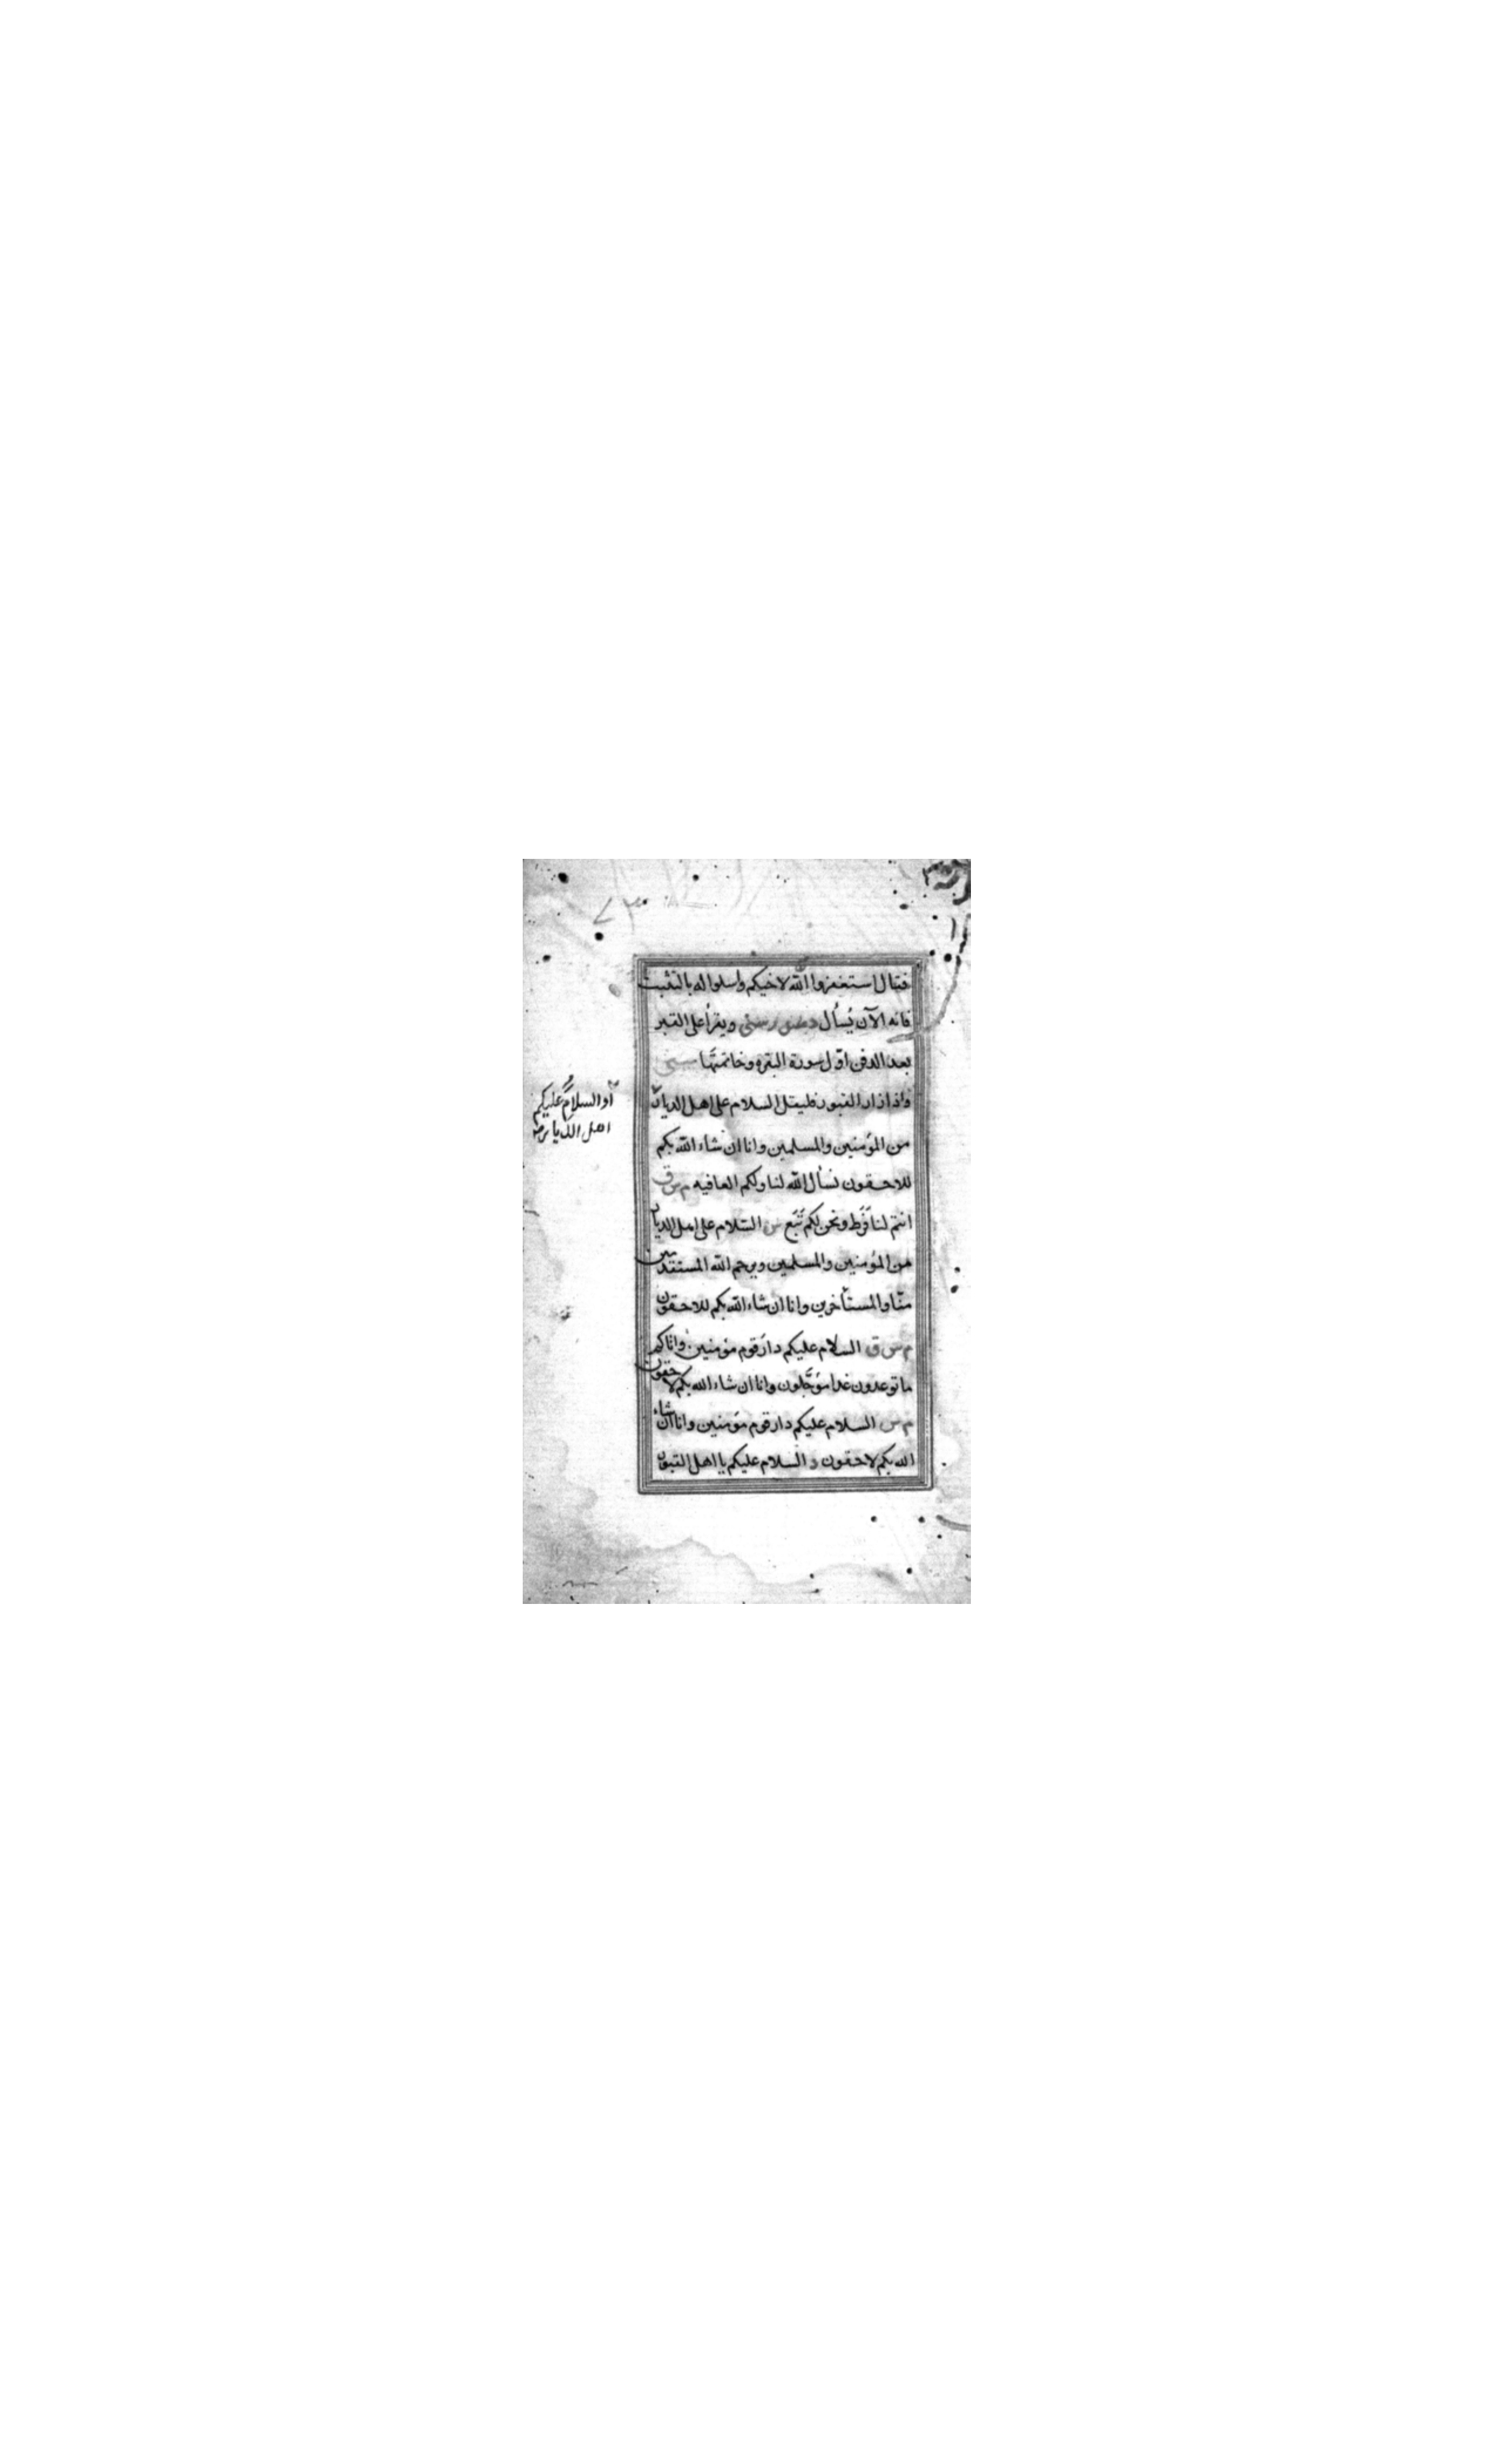 فقال استغفروا الله لاخيكم واسلوا له بالتثبت
فانه الآن يُسأل د مس ر سنى ويقرأ على القبر
بعد الدفن اوّل سورة البقره وخاتمتَها سنى
واذا زار القبور فليقل السلام على اهل الديار
من المؤمنين والمسلمين وانا ان شاء الله بكم
للاحقون نسأل الله لنا ولكم العافيه م س ق
انتم لنا فَرَط ونحن لكم تَبَع س السّلام على اهل الديار
من المؤمنين والمسلمين ويرحم الله المستقدمين
منّا والمستأخرين وانا ان شاء الله بكم للاحقون
م س ق السلام عليكم دارَ قوم مؤمنين واتاكم
ما توعدون غدا مؤجّلون وانا ان شاء الله بكم لاحقون
م س السلام عليكم دار قوم مؤمنين وانا ان شاء
الله بكم لاحقون د السلام عليكم يا اهل القبور
او السلام عليكم
اهل الديار